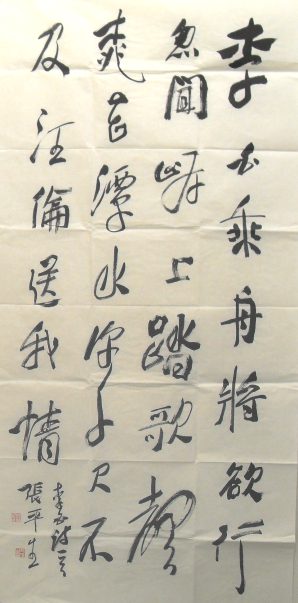 李白乘舟將欲行
忽聞岸上踏歌聲
桃花潭水深千尺不
及汪倫送我情
李白詩一首
張平生